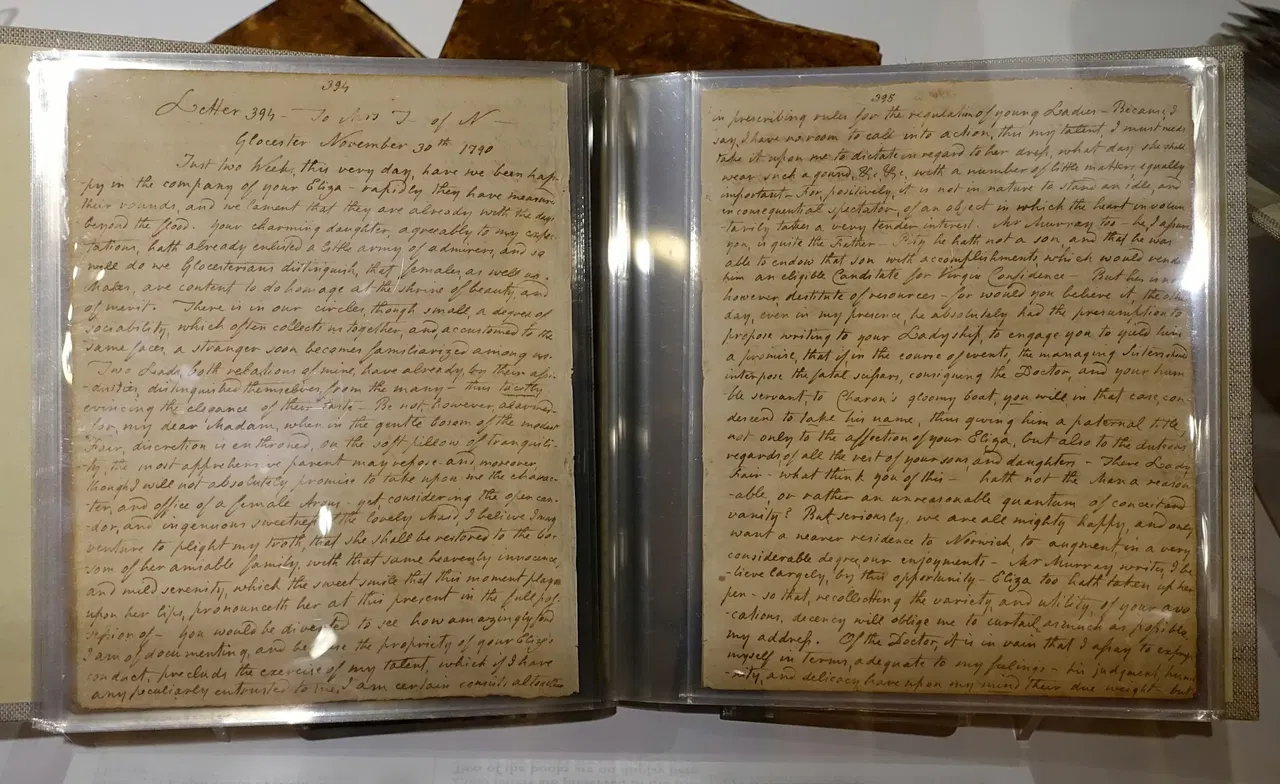 394
Letter 394 - To Mrs T- of N-
Glocester November 30th 1790
Just two Weeks, this very day, have we been hap-
py in the company of your Eliza - rapidly they have measur
their rounds, and we lament that they are already with the days
beyond the flood. Your charming daughter, agreeably to my expec
tations, hath already enlisted a little army of admirers, and so
well do we Glocesterians distinguish, that females, as well as
Males, are content to do homage at the shrine of beauty, and
of merit. There is in our circles, though small, a degree of
sociability, which often collects us together, and accustomed to the
same faces, a stranger soon becomes familiarized among us.
Two Lads, both relations of mine, have already, by their assi-
-duities, distinguished themselves, from the many - thus tacitly
evincing the elegance of their taste - Be not, however, alarmed
for, my dear Madam, when in the gentle bosom of the modest
Fair, discretion is enthroned, on the soft pillow of tranquili-
-ty, the most apprehensive parent may repose - and moreover,
though I will not absolutely promise to take upon me the charac-
ter, and office of a female Argus - yet considering the open can-
-dor, and ingenuous sweetness of the lovely Maid, I believe I may
venture to plight my troth, that she shall be restored to the bo-
som of her amiable family, with that same heavenly innocence,
and mild serenity, which the sweet smile that this moment plays
upon her lips, pronounceth her at this present in the full pos-
session of - You would be diverted to see how amazingly fond
I am of documenting, and because the propriety of your Eliza's
conduct, precludes the exercise of my talent, which if I have
any peculiarly entrusted to me, I am certain consists altogether
395
in prescribing rules for the regulation of young Ladies - Because, I
say, I have no room to call into action, this my talent, I must needs
take it upon me to dictate in regard to her dress, what day she shall
wear such a gownd, &c, &c, with a number of little matters equally
important - For, positively, it is not in nature to stand an idle, and
inconsequential spectator, of an object in which the heart involun
tarily takes a very tender interest. Mr Murray too - he, I assure
you, is quite the Father - Pity he hath not a son, and that he was
able to endow that son with accomplishments which would rende
him an eligible Candidate for Virgin Confidence - But he is not
however, destitute of resources - for would you believe it, the other
day, even in my presence, he absolutely had the presumption to
propose writing to your Ladyship, to engage you to yield him
a promise, that if in the course of events, the managing Sisters should
interpose the fatal scissars, consigning the Doctor, and your hum
ble servant, to Charon's gloomy boat, you will, in that case, con-
descend to take his name, thus giving him a paternal title,
not only to the affection of your Eliza, but also to the duteous
regards of all the rest of your sons and daughters - There Lady
Fair - what think you of this - hath not the Man a reason
-able, or rather an unreasonable quantum of conceit and
vanity? But seriously, we are all mighty happy, and only
want a nearer residence to Norwich, to augment in a very
considerable degree, our enjoyments - Mr Murray writes, I be
-lieve largely, by this opportunity - Eliza too hath taken up her
pen - so that, recollecting the variety and utility, of your avo
-cations, decency will oblige me to curtail, as much as possible,
my address. Of the Doctor, it is in vain that I assay to express
myself in terms, adequate to my feelings - his judgment, huma
-nity, and delicacy have upon my mind their due weight - but
Two of the books are on display here